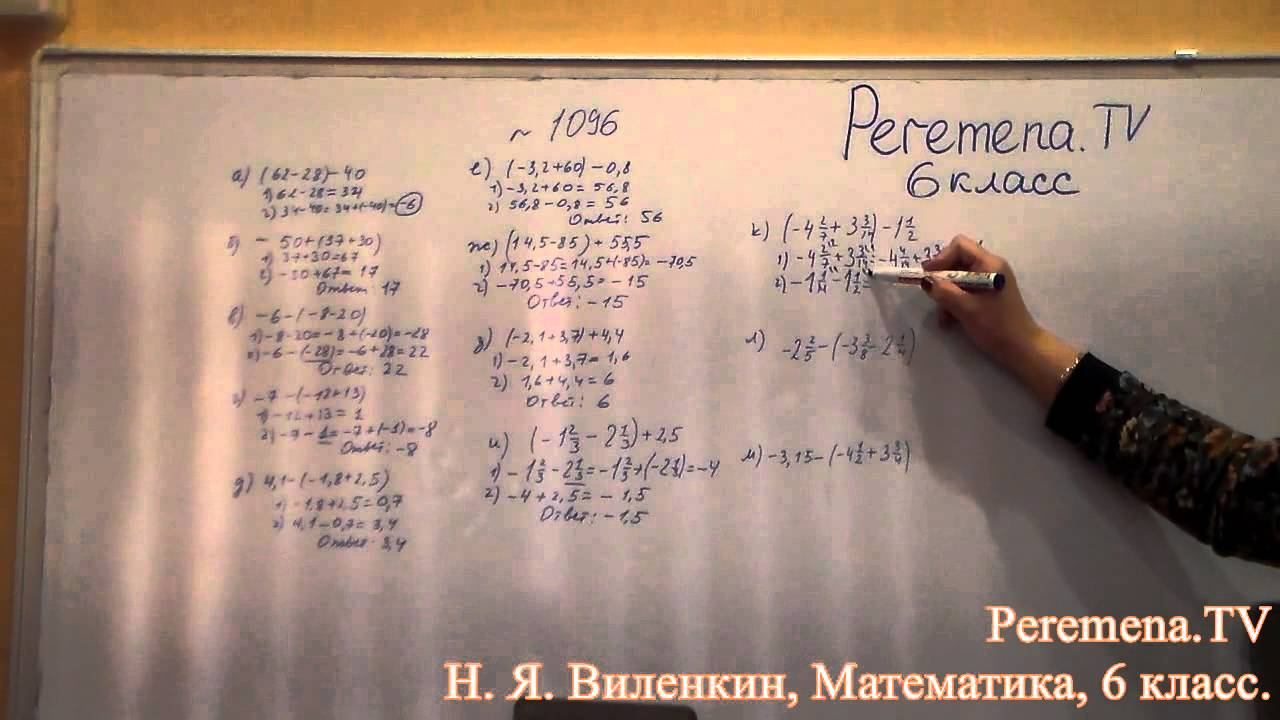 № 1096
Peremena.TV
6 класс
а) (62-28)-40
1) 62-28=34
2) 34-40=34+(-40)=-6
б) -50+(37+30)
1) 37+30=67
2) -50+67=17
Ответ: 17
в) -6-(-8-20)
1) -8-20=-8+(-20)=-28
2) -6-(-28)=-6+28=22
Ответ: 22
г) -7-(-12+13)
1) -12+13=1
2) -7-1=-7+(-1)=-8
Ответ: -8
д) 4,1-(-1,8+2,5)
1) -1,8+2,5=0,7
2) 4,1-0,7=3,4
Ответ: 3,4
е) (-3,2+60)-0,8
1) -3,2+60=56,8
2) 56,8-0,8=56
Ответ: 56
ж) (14,5-85)+55,5
1) 14,5-85=14,5+(-85)=-70,5
2) -70,5+55,5=-15
Ответ: -15
з) (-2,1+3,7)+4,4
1) -2,1+3,7=1,6
2) 1,6+4,4=6
Ответ: 6
и) (-1 2/3 - 2 1/3)+2,5
1) -1 2/3 - 2 1/3 = -1 2/3 + (-2 1/3) = -4
2) -4+2,5=-1,5
Ответ: -1,5
к) (-4 2/7 + 3 3/14) - 1 1/2
1) -4 2/7 + 3 3/14 = -4 4/14 + 3
2) -1 1/14 - 1 1/2 =
л) -2 2/5 - (-3 3/8 - 2 1/4)
м) -3,15-(-4 1/2 + 3 3/4)
Peremena.TV
Н. Я. Виленкин, Математика, 6 класс.